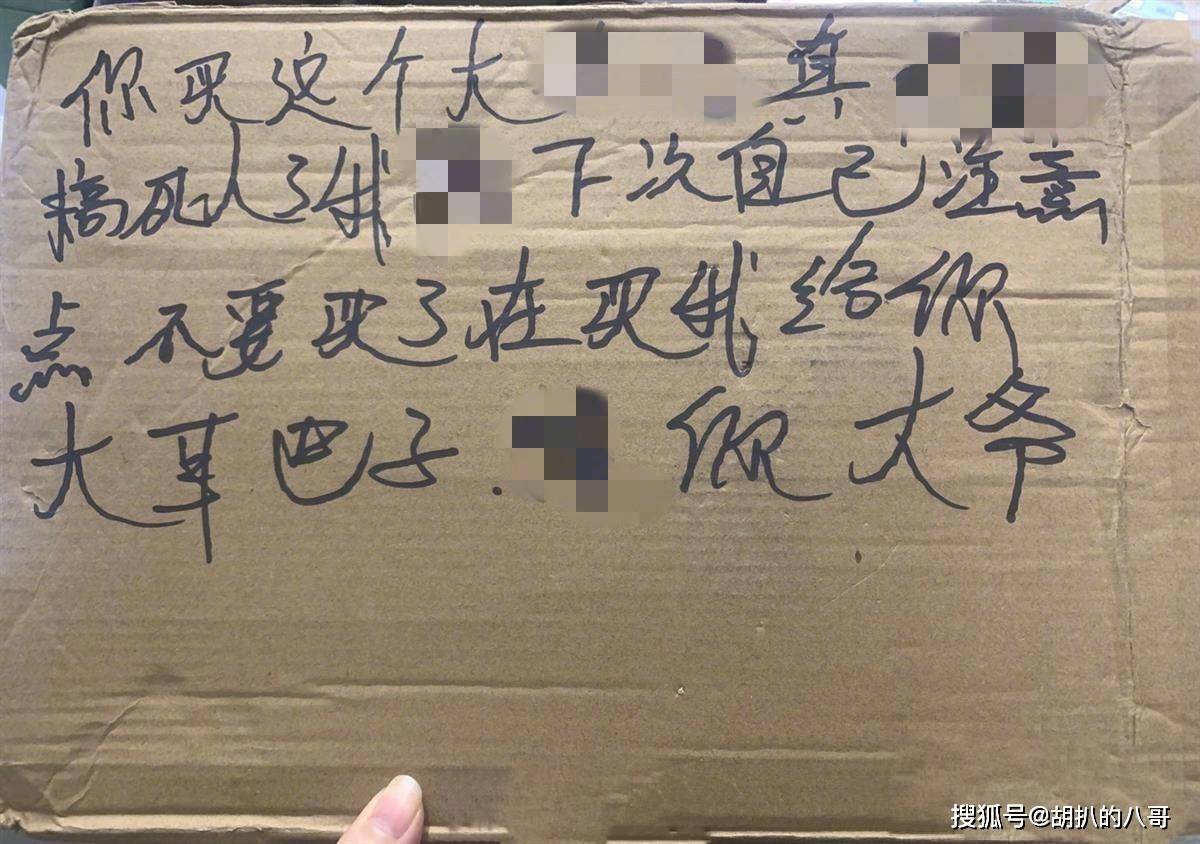 你买这个大 真
搞死人了我 下次自己注意
点不要买了在买我给你
大耳巴子. 你大爷
搜狐号@胡扒的八哥